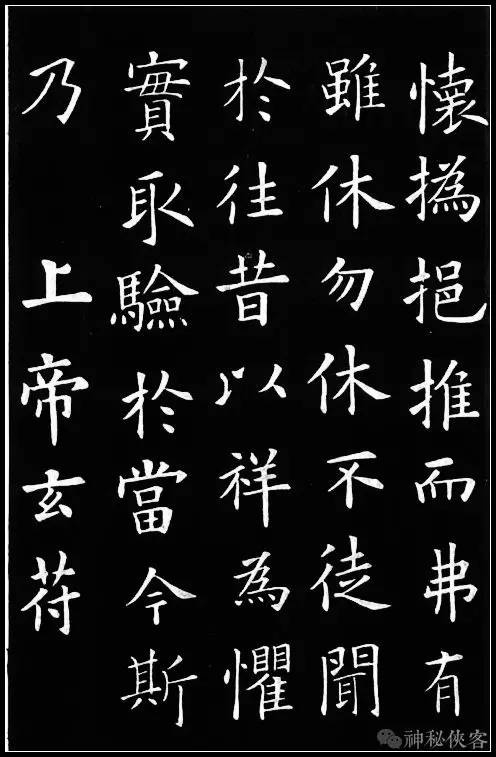 懷撝挹推而弗有
雖休勿休不徒聞
於往昔以祥為懼
實取驗於當今斯
乃上帝玄符
神秘俠客